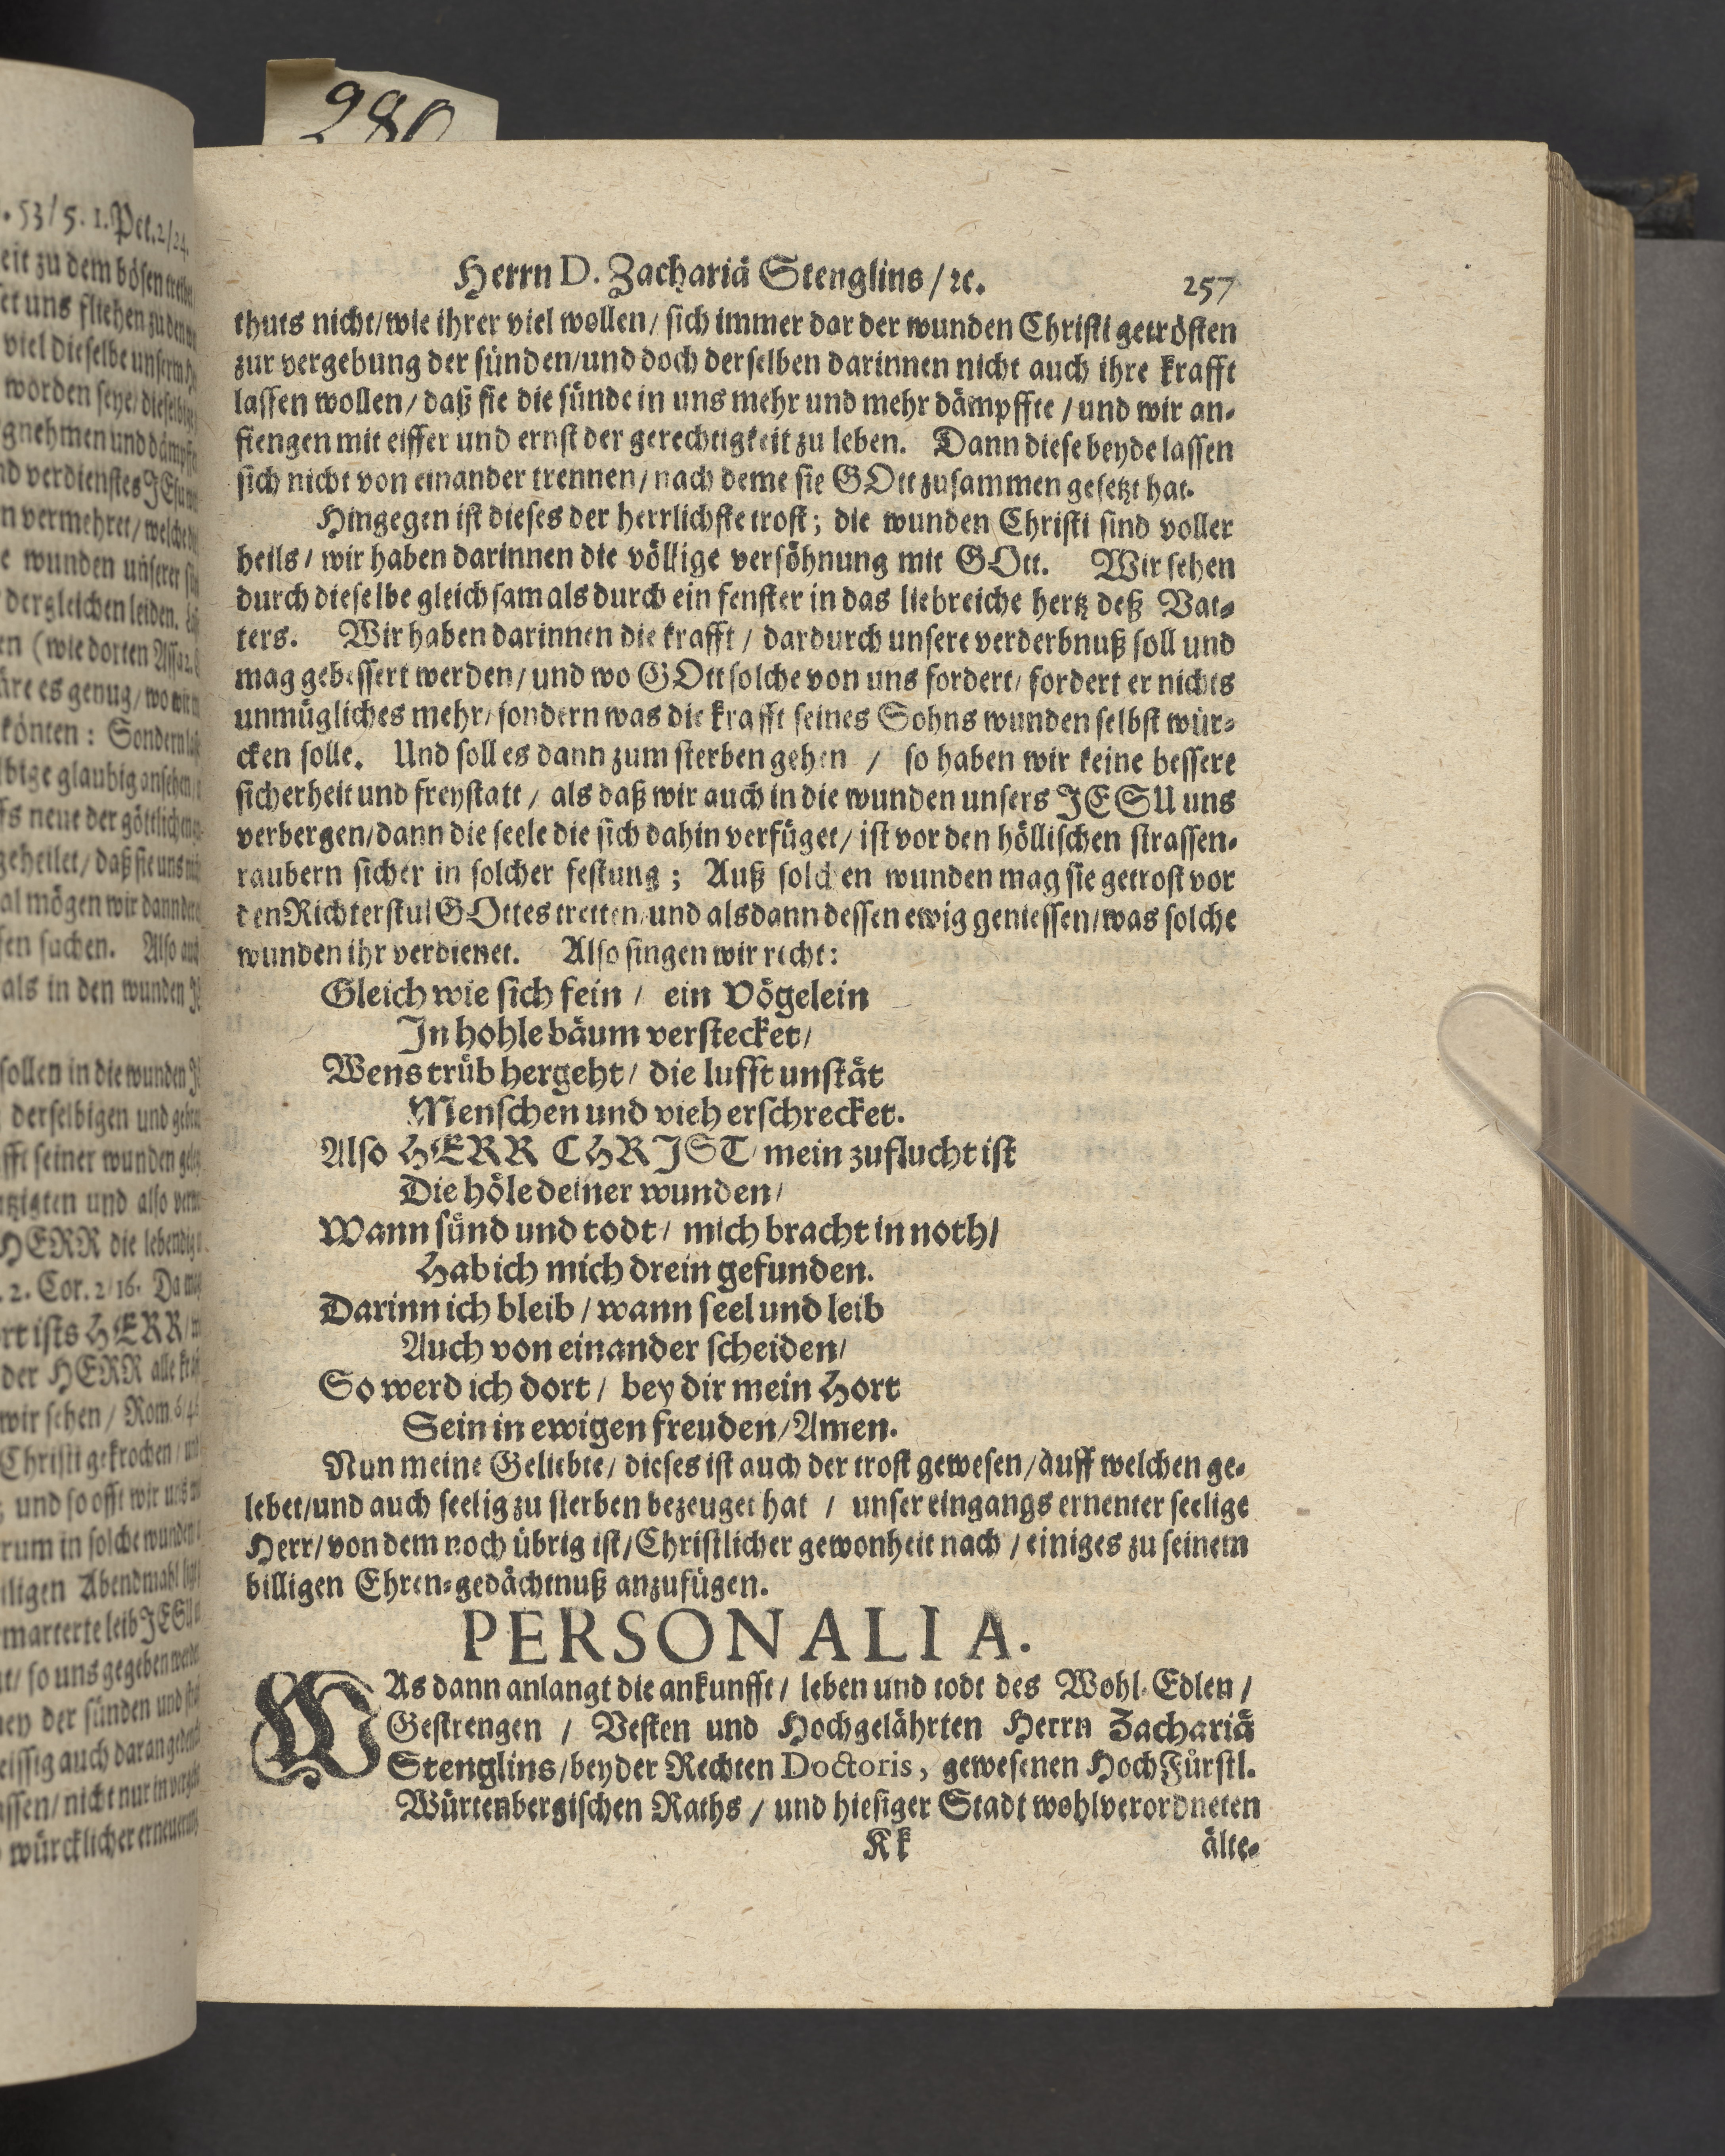 280
. 53/5. 1. Pet. 2/24.
eit zu dem bösen
et uns fliehen zu den
viel dieselbe unserm
worden seye/
gnehmen und
nd verdienstes JEsu
n vermehret/
e wunden unserer
dergleichen leiden.
en (wie dorten
äre es genug/ wo wir
könten: Sondern
bige glaubig ansehen
fs neue der göttlichen
geheilet/ daß sie uns
al mögen wir dann
sen suchen. Also auch
als in den wunden
sollen in die wunden
derselbigen und
fft seiner wunden
tzigten und also
HERR die lebendig
. 2. Cor. 2/16. Da
rt ists HERR/
der HERR alle
wir sehen/ Rom 6/4
Christi gekrochen/
; und so offt wir uns
rum in solche wunden
iligen Abendmahl
marterte leib JESU
t/ so uns gegeben
ney der sünden und
eissig auch daran
assen/ nicht nur in
würcklicher erneuerung
Herrn D. Zachariä Stenglins/ ꝛc. 257
thuts nicht/ wie ihrer viel wollen/ sich immer dar der wunden Christi getrösten
zur vergebung der sünden/ und doch derselben darinnen nicht auch ihre krafft
lassen wollen/ daß sie die sünde in uns mehr und mehr dämpffte/ und wir an-
fiengen mit eiffer und ernst der gerechtigkeit zu leben. Dann diese beyde lassen
sich nicht von einander trennen/ nach deme sie GOtt zusammen gesetzt hat.
Hingegen ist dieses der herrlichste trost; die wunden Christi sind voller
heils/ wir haben darinnen die völlige versöhnung mit GOtt. Wir sehen
durch dieselbe gleichsam als durch ein fenster in das liebreiche hertz deß Vat-
ters. Wir haben darinnen die krafft/ dardurch unsere verderbnuß soll und
mag gebessert werden/ und wo GOtt solche von uns fordert/ fordert er nichts
unmügliches mehr/ sondern was die krafft seines Sohns wunden selbst wür-
cken solle. Und soll es dann zum sterben gehen / so haben wir keine bessere
sicherheit und freystatt/ als daß wir auch in die wunden unsers JESU uns
verbergen/ dann die seele die sich dahin verfüget/ ist vor den höllischen strassen-
raubern sicher in solcher festung; Auß solchen wunden mag sie getrost vor
den Richterstul GOttes tretten/ und alsdann dessen ewig geniessen/ was solche
wunden ihr verdienet. Also singen wir recht:
Gleich wie sich fein/ ein Vögelein
In hohle bäum verstecket/
Wens trüb hergeht/ die lufft unstät
Menschen und vieh erschrecket.
Also HERR CHRIST/ mein zuflucht ist
Die höle deiner wunden/
Wann sünd und todt/ mich bracht in noth/
Hab ich mich drein gefunden.
Darinn ich bleib/ wann seel und leib
Auch von einander scheiden/
So werd ich dort/ bey dir mein Hort
Sein in ewigen freuden/ Amen.
Nun meine Geliebte/ dieses ist auch der trost gewesen/ auff welchen ge-
lebet/ und auch seelig zu sterben bezeuget hat / unser eingangs ernenter seelige
Herr/ von dem noch übrig ist/ Christlicher gewonheit nach/ einiges zu seinem
billigen Ehren-gedächtnuß anzufügen.
PERSONALIA.
WAs dann anlangt die ankunfft/ leben und todt des Wohl-Edlen/
Gestrengen / Vesten und Hochgelährten Herrn Zachariä
Stenglins/ beyder Rechten Doctoris, gewesenen HochFürstl.
Würtenbergischen Raths/ und hiesiger Stadt wohlverordneten
Kk älte-